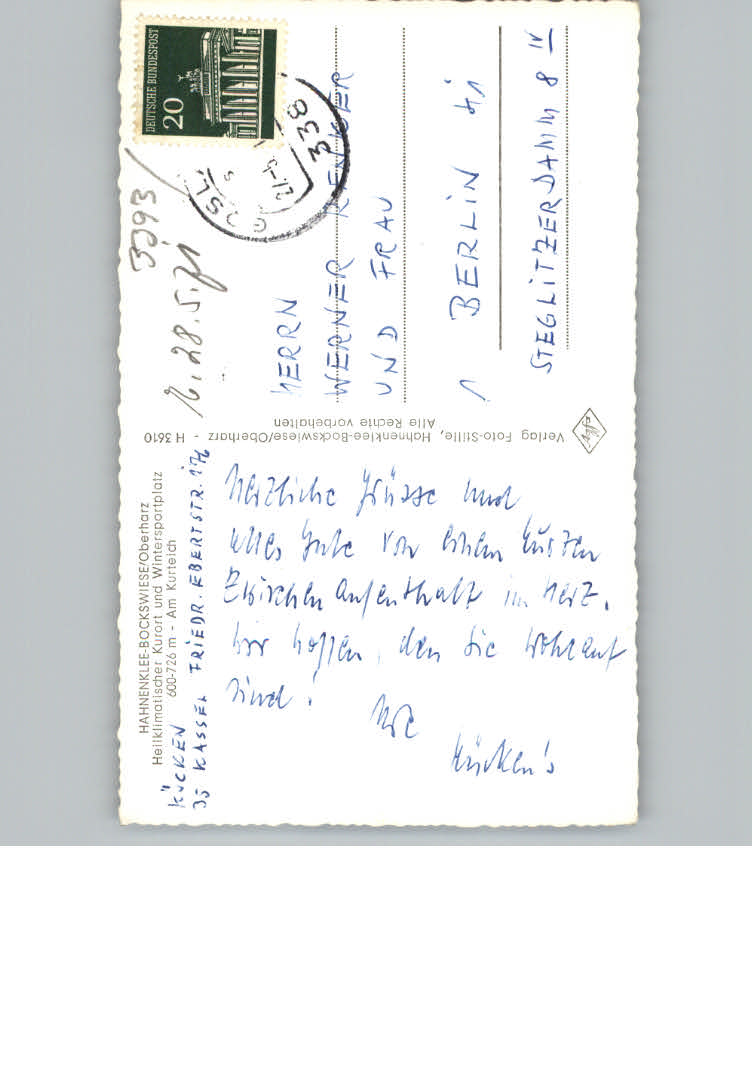 HAHNENKLEE-BOCKSWIESE/Oberharz
Heilklimatischer Kurort und Wintersportplatz
600-726 m - Am Kurteich
KÜCKEN
35 KASSEL FRIEDR. EBERTSTR.
Herzliche Grüsse und
alles Gute von einem kurzen
Zwischenaufenthalt im Harz.
Wir hoffen, dass Sie wohlauf
sind!
Ihre
Kücken's
Verlag Foto-Stille, Hahnenklee-Bockswiese/Oberharz - H 3610
Alle Rechte vorbehalten
DEUTSCHE BUNDESPOST
20
338
GOSL
3393
28.5.71
HERRN
WERNER RENKER
UND FRAU
1 BERLIN 41
STEGLITZERDAMM 8 IV